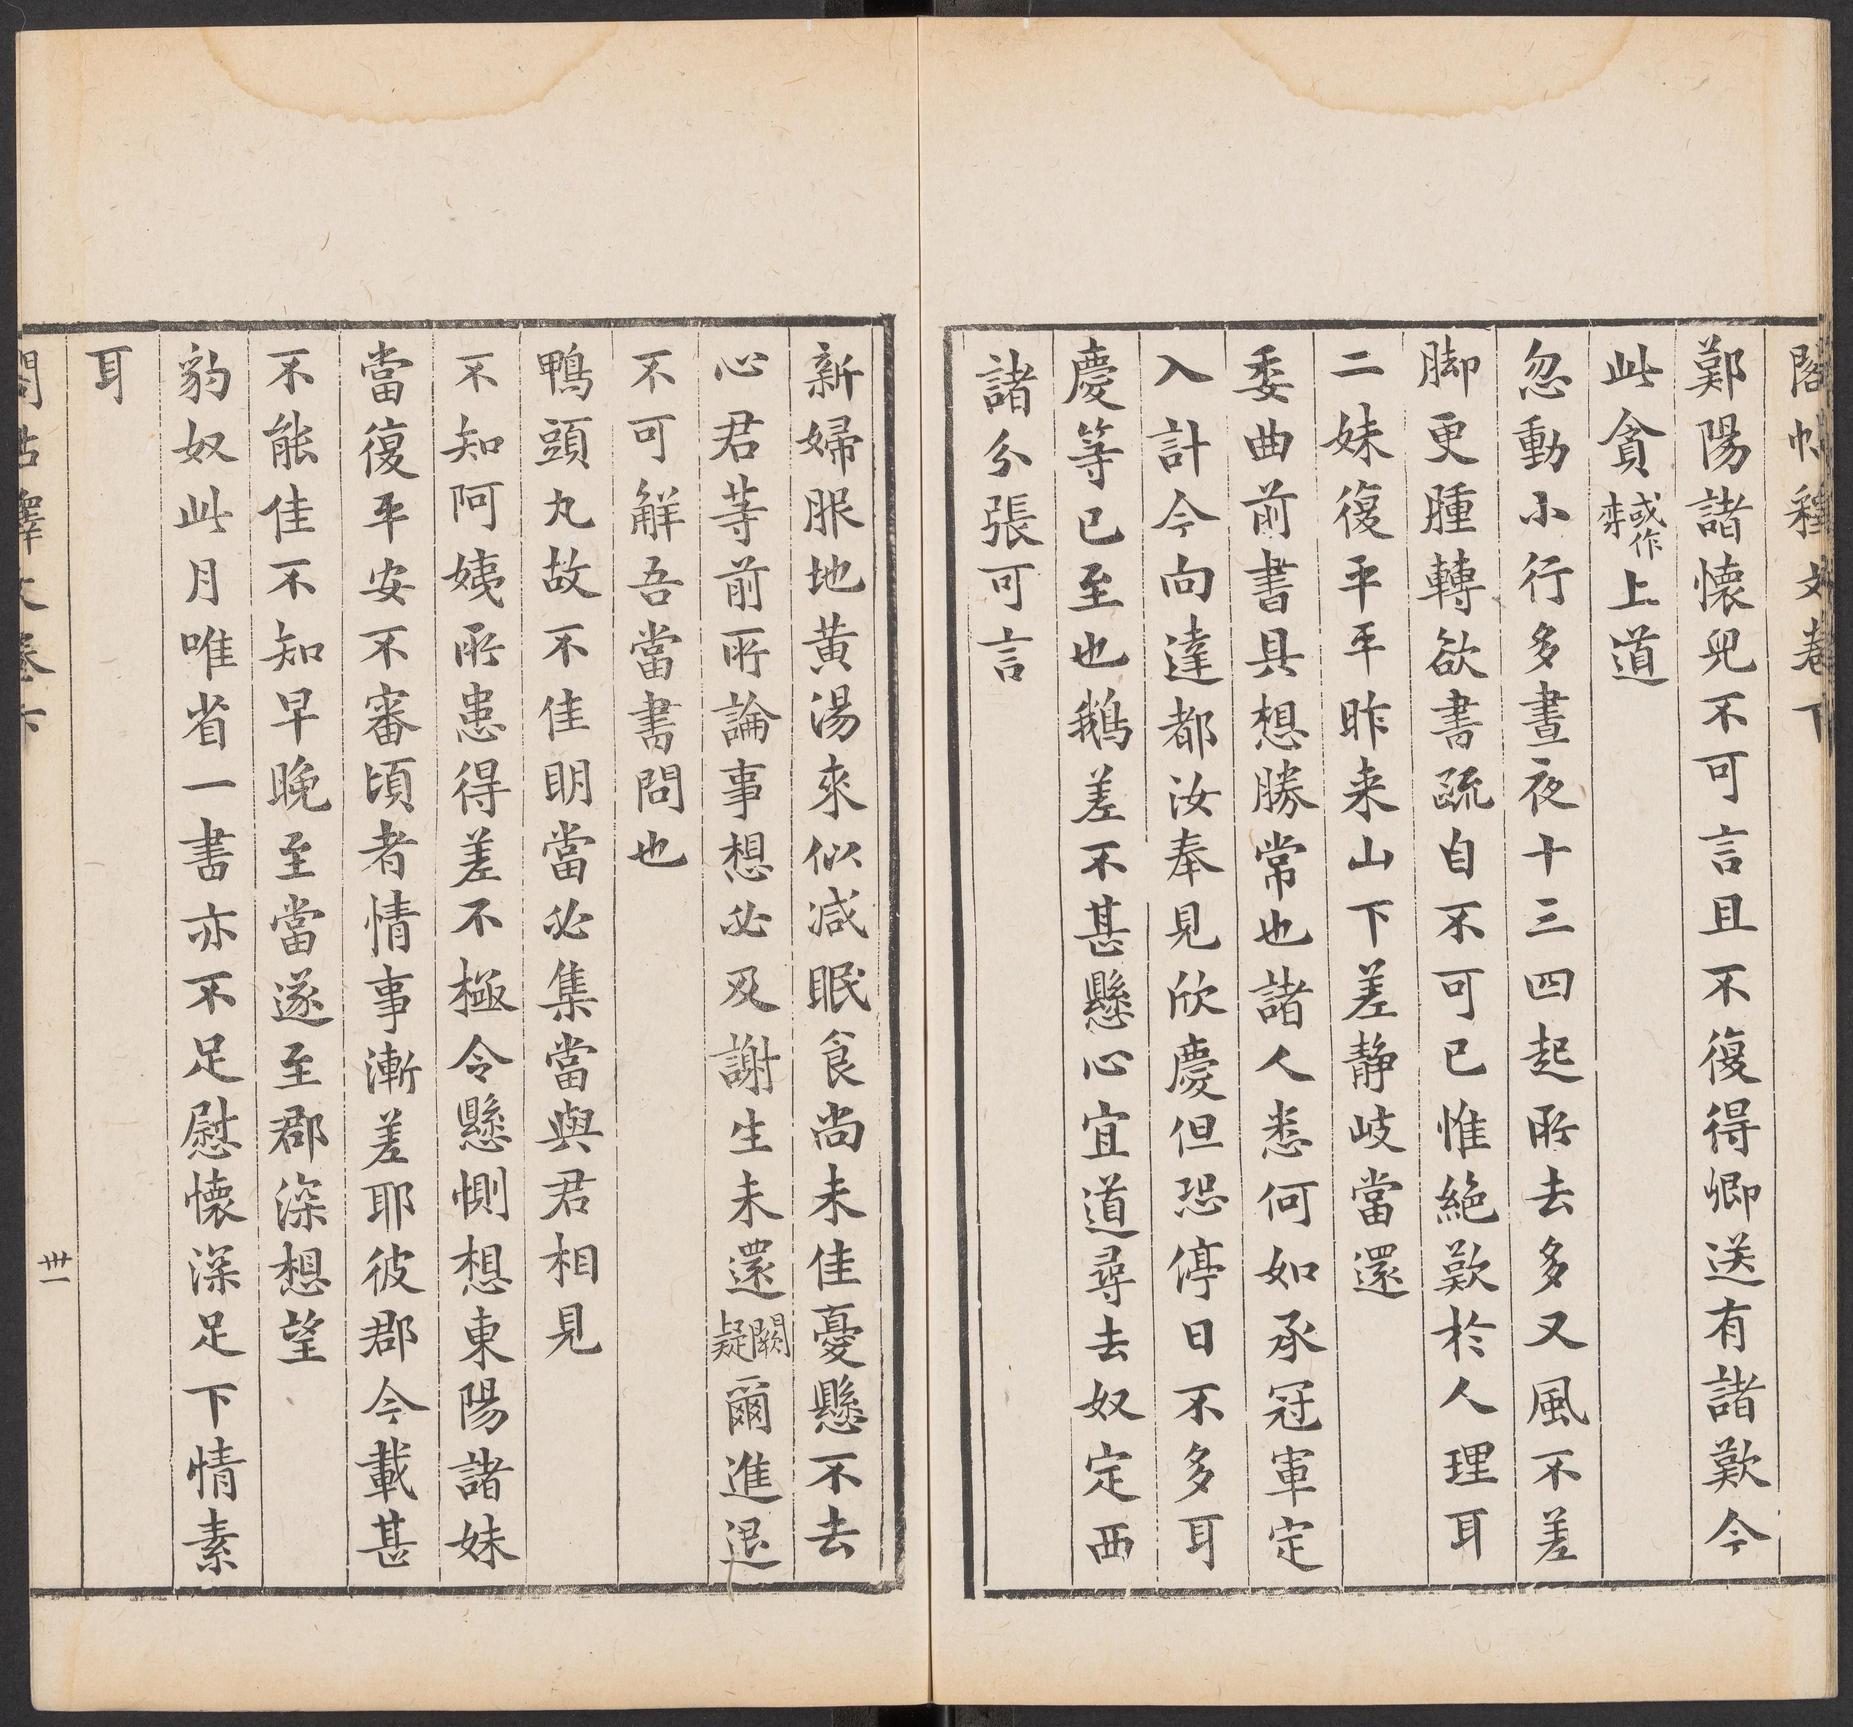 閣帖釋文卷下
鄭陽諸懐兒不可言且不復得卿送有諸歎今
此貪或作弈上道
忽動小行多晝夜十三四起所去多又風不差
脚更腫轉欲書疏自不可已惟絶歎於人理耳
二妹復平平昨来山下差静岐當還
委曲前書具想勝常也諸人悉何如承冠軍定
入計今向達都汝奉見欣慶但恐停日不多耳
慶等已至也鵝差不甚懸心宜道尋去奴定西
諸分張可言
新婦服地黄湯來似減眠食尚未佳憂懸不去
心君等前所論事想必及謝生未還闕疑爾進退
不可解吾當書問也
鴨頭丸故不佳明當必集當與君相見
不知阿姨所患得差不極令懸惻想東陽諸妹
當復平安不審頃者情事漸差耶彼郡今載甚
不能佳不知早晚至當遂至郡深想望
豹奴此月唯省一書亦不足慰懐深足下情素
耳
閣帖釋文卷下
卅一